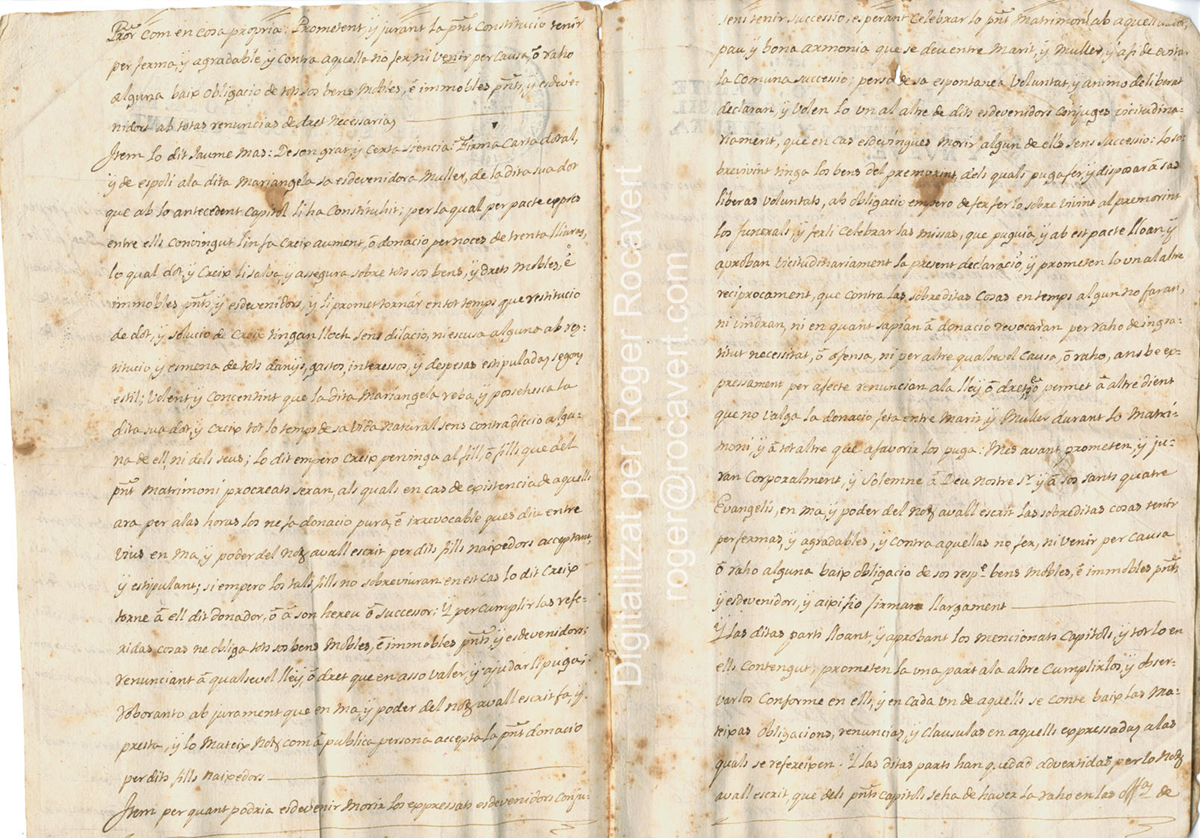 Pror com en cosa propria: Prometent, y jurant la pñt Constitucio tenir
per ferma, y agradable, y contra aquella no fer ni venir per causa, ò raho
alguna baix obligacio de tots sos bens mobles, è immobles pñts, y esdeve-
nidors ab totas renuncias de dret necessarias
Item lo dit Jaume Mas: De son grat, y Certa siencia: Firma Carta dotal,
y de espoli a la dita Mariangela sa esdevenidora Muller, de la dita sua dot
que ab lo antecedent Capitol li ha Constituhit; per la qual per pacte expres
entre ells Convingut li n fa Creix aument, ò donacio per noces de trenta lliures,
lo qual dot, y Creix li salva, y assegura sobre tots sos bens, y drets Mobles, è
immobles pñts, y esdevenidors, y li promet tornar en tot temps que restitucio
de dot, y solucio de Creix tingan lloch sens dilacio, ni escusa alguna ab res-
titucio, y esmena de tots danys, gastos, interessos, y despesas estipuladas segons
estil; Volent, y Concentint que la dita Mariangela reba, y poseesca la
dita sua dot, y Creix tot lo temps de sa Vida natural sens contradiccio algu-
na de ell, ni dels seus; lo dit empero Creix pervinga al fill, ò fills que del
pñt Matrimoni procreats seran, als quals en cas de existencia de aquells
ara per a las horas los ne fa donacio pura, è irrevocable ques diu entre
Vius en ma, y poder del Notj avall escrit per dits fills naixedors acceptant,
y estipulant; si empero los tals fills no sobreviuran en est cas lo dit Creix
torne à ell dit donador, ò à son hereu ò successor; Y per cumplir las refe-
ridas cosas ne obliga tots sos bens Mobles, è immobles pñts, y esdevenidors;
renunciant à qualsevol lley, ò dret que en asso valer, y ajudar li puga;
roboranto ab jurament que en ma, y poder del Notj avall escrit fa, y
presta, y lo Mateix Notj com à publica persona accepta la pñt donacio
per dits fills naixedors
Item per quant podria esdevenir Morir los expressats esdevenidors Conju-
sens tenir successio, esperant Celebrar lo pñt Matrimoni ab aquella
pau, y bona armonia que se deu entre Marit, y Muller, y afi de evitar
la comuna successio; perso de sa espontanea Voluntat, y animo deliberat
declaran, y Volen lo un al altre de dits esdevenidors Conjuges vicitudina-
riament, que en cas esdevingues morir algun de ells sens successio: lo so-
brevivint tinga los bens del premorint, dels quals puga fer, y disposar à sas
liberas Voluntats, ab obligacio empero de fer fer lo sobrevivint al premorint
los funerals, y ferli Celebrar las missas, que puguia, y ab est pacte lloan, y
aproban vicitudinariament la present declaracio, y prometen lo un al altre
reciprocament, que contra las sobreditas Cosas en temps algun no faran,
ni vindran, ni en quant sapian à donacio revocaran per raho de ingra-
titut necessitat, ò afensa, ni per altre qualsevol Causa, ò raho, ans be ex-
presament per afecte renuncian a la lley, ò dret permet à altre dient
que no valga la donacio feta entre Marit, y Muller durant lo Matri-
moni, y à tot altre que afavorir los puga: Mes avant prometen, y ju-
ran Corporalment, y Solemne à Deu Nostre Sr. y à sos sants quatre
Evangelis, en ma, y poder del Notj avall escrit las sobreditas cosas tenir
per fermas, y agradables, y contra aquellas no fer, ni venir per causa
ò raho alguna baix obligacio de sos resp.e bens mobles, è immobles pñts
y esdevenidors, y aixi ho firman llargament
Y las ditas parts lloant, y aprobant los mencionats Capitols, y tot lo en
ells Contengut; prometen la una part a la altre Cumplirlos, y obser-
varlos Conforme en ells, y en cada un de aquells se conte baix las Ma-
teixas obligacions, renuncias, y Clausulas en aquells expressadas a las
quals se refereixen. Y las ditas parts han quedad advertidas per lo Notj
avall escrit, que dels pñts Capitols se ha de haver la raho en las de